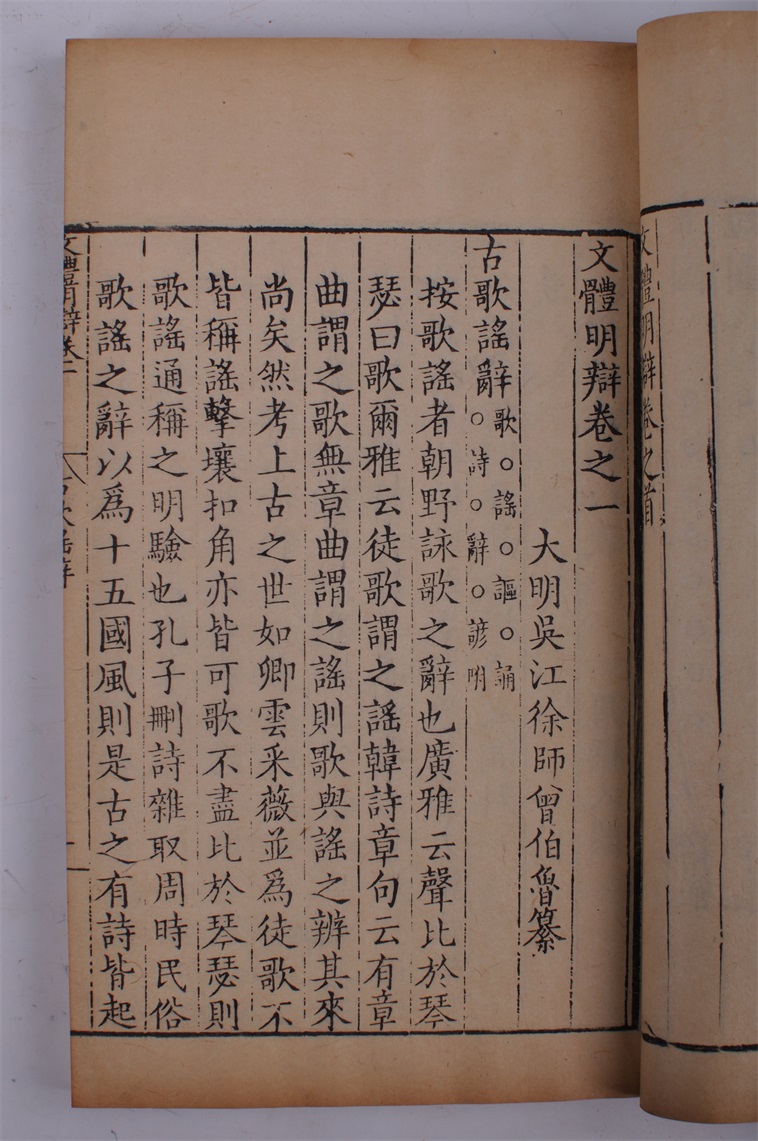 文體明辯卷之首
文體明辯卷之一
大明吳江徐師曾伯魯纂
古歌謠辭歌○謠○謳○誦
○詩○辭○諺附
按歌謠者朝野詠歌之辭也廣雅云聲比於琴
瑟曰歌爾雅云徒歌謂之謠韓詩章句云有章
曲謂之歌無章曲謂之謠則歌與謠之辨其來
尚矣然考上古之世如卿雲采薇並爲徒歌不
皆稱謠擊壤扣角亦皆可歌不盡比於琴瑟則
歌謠通稱之明驗也孔子刪詩雜取周時民俗
歌謠之辭以爲十五國風則是古之有詩皆起
文體明辯卷一
古歌謠辭
一